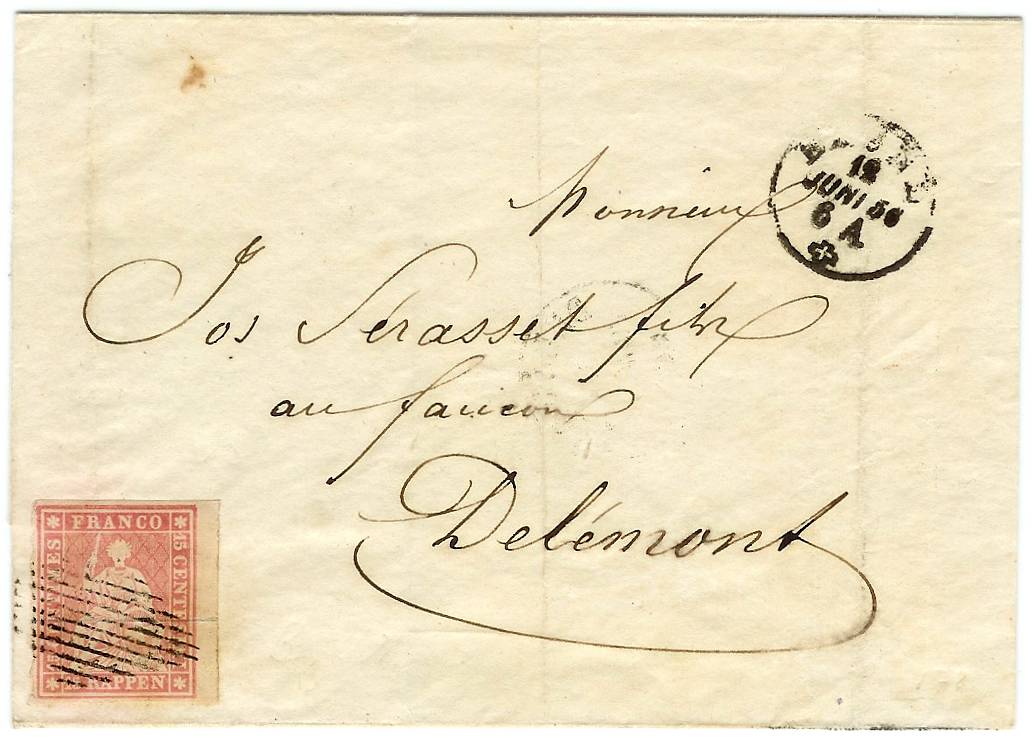 12
JUNI 56
6 A
Monsieur
Jos Sérasset fils
au faucon
Delémont
FRANCO
15 CENT
TIMES
RAPPEN